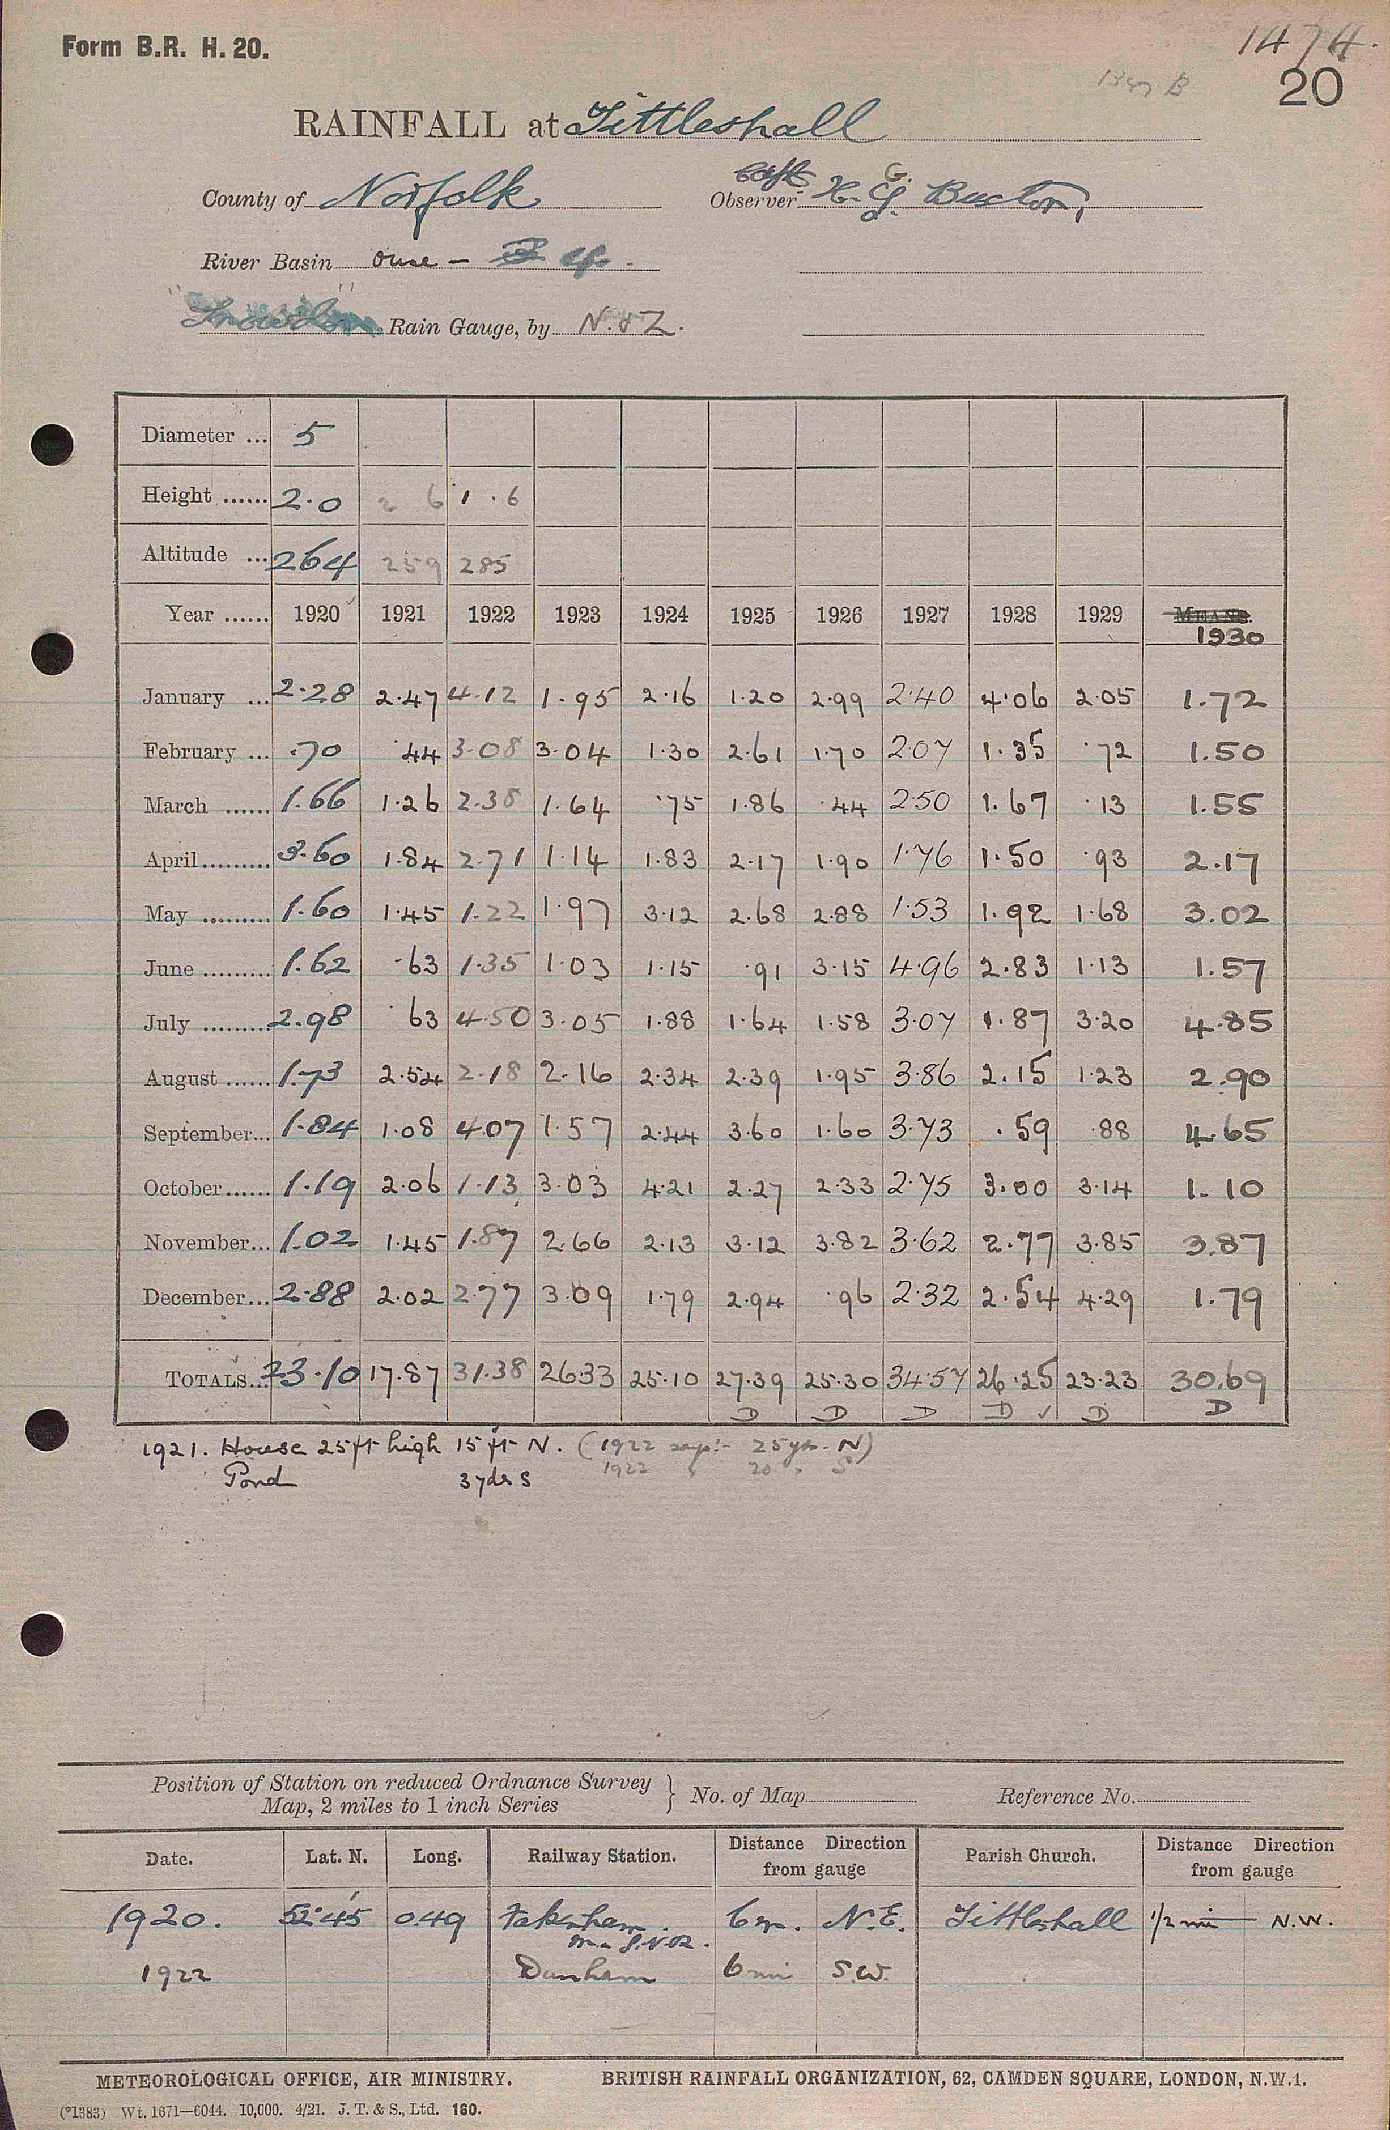 Form B.R. H. 20.
1474.
20
RAINFALL at Tittleshall
County of Norfolk
Observer Capt. H. G. Buxton,
River Basin Ouse -
"Snowdon" Rain Gauge, by N. & Z.
Diameter ... 5
Height ...... 2.0 2 6 1 . 6
Altitude ... 264 259 285
Year ...... 1920 1921 1922 1923 1924 1925 1926 1927 1928 1929 MEANS. 1930
January ... 2.28 2.47 4.12 1.95 2.16 1.20 2.99 2.40 4.06 2.05 1.72
February ... .70 .44 3.08 3.04 1.30 2.61 1.70 2.07 1.35 .72 1.50
March ...... 1.66 1.26 2.38 1.64 .75 1.86 .44 2.50 1.67 .13 1.55
April ......... 3.60 1.84 2.71 1.14 1.83 2.17 1.90 1.76 1.50 .93 2.17
May ......... 1.60 1.45 1.22 1.97 3.12 2.68 2.88 1.53 1.92 1.68 3.02
June ......... 1.62 .63 1.35 1.03 1.15 .91 3.15 4.96 2.83 1.13 1.57
July ......... 2.98 .63 4.50 3.05 1.88 1.64 1.58 3.07 1.87 3.20 4.85
August ...... 1.73 2.54 2.18 2.16 2.34 2.39 1.95 3.86 2.15 1.23 2.90
September... 1.84 1.08 4.07 1.57 2.44 3.60 1.60 3.73 .59 .88 4.65
October ...... 1.19 2.06 1.13 3.03 4.21 2.27 2.33 2.75 3.00 3.14 1.10
November... 1.02 1.45 1.87 2.66 2.13 3.12 3.82 3.62 2.77 3.85 3.87
December... 2.88 2.02 2.77 3.09 1.79 2.94 .96 2.32 2.54 4.29 1.79
TOTALS... 23.10 17.87 31.38 26.33 25.10 27.39 25.30 34.57 26.25 23.23 30.69
D D D D ✓ D D
1921. House 25 ft high 15 ft N. (1922 25 yds N)
Pond 3 yds S 1922 20 S
Position of Station on reduced Ordnance Survey
Map, 2 miles to 1 inch Series } No. of Map Reference No.
Date. Lat. N. Long. Railway Station. Distance Direction from gauge Parish Church. Distance Direction from gauge
1920. 52°45' 0.49 Fakenham. 6 m. N.E. Tittleshall 1/2 mi N.W.
1922 Dunham 6 mi S.W.
METEOROLOGICAL OFFICE, AIR MINISTRY. BRITISH RAINFALL ORGANIZATION, 62, CAMDEN SQUARE, LONDON, N.W.1.
(*1383) Wt. 1671—6044. 10,000. 4/21. J. T. & S., Ltd. 160.